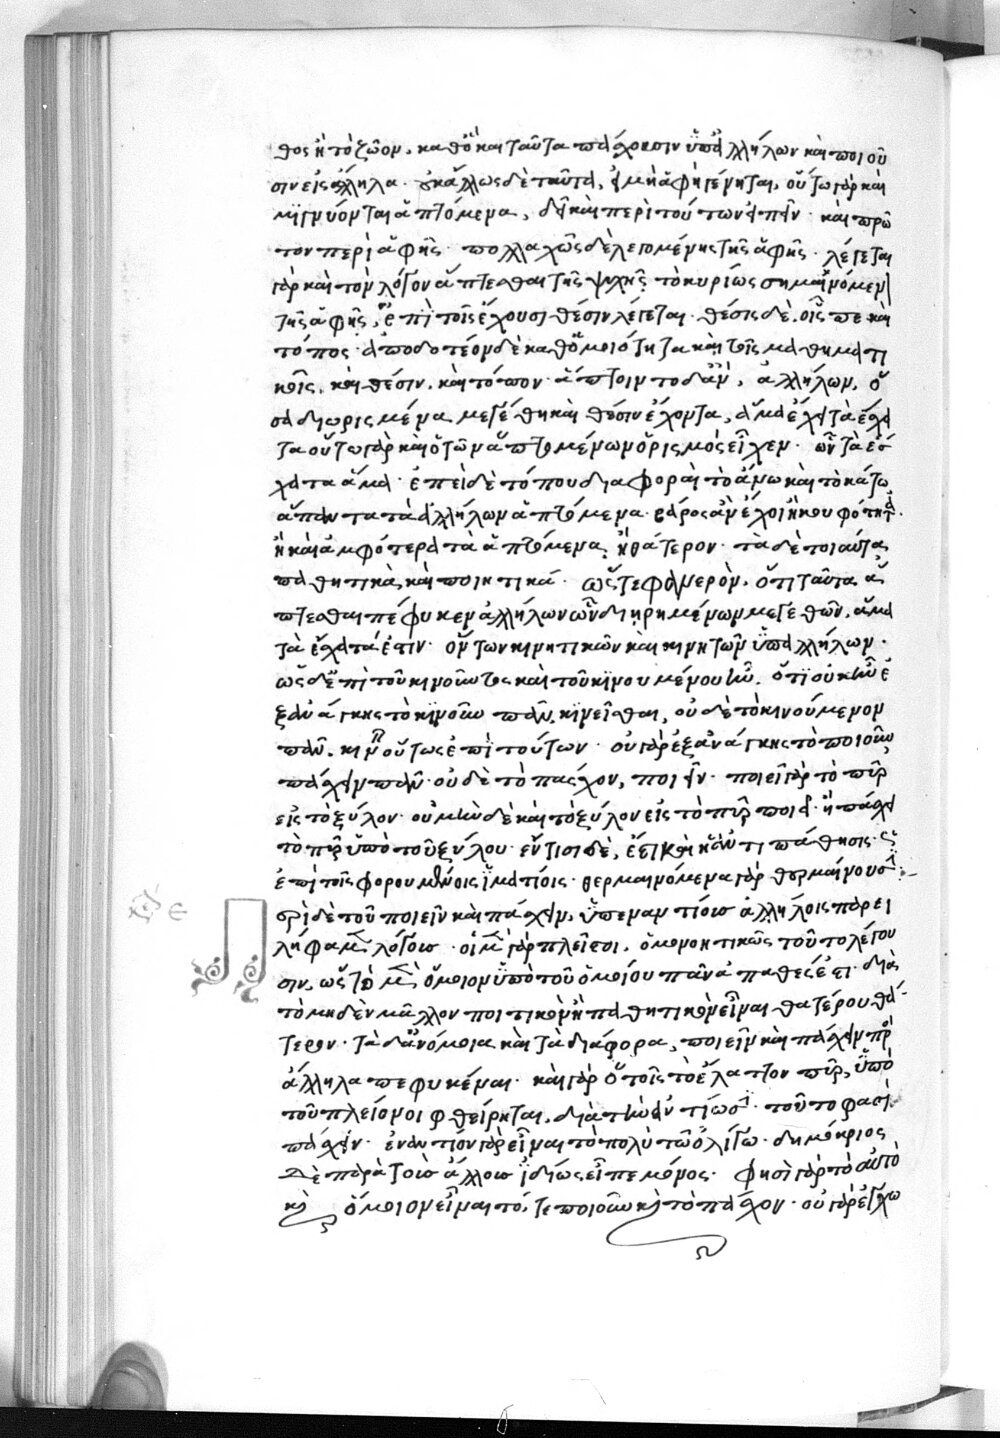 θος ἢ τὸ ζῶον. καθὸ καὶ ταῦτα πάσχουσιν ὑπ' ἀλλήλων καὶ ποιοῦ
σιν εἰς ἄλληλα. οὐκ ἄλλως δὲ ταῦτα, εἰ μὴ ἁφὴ γένηται, οὕτω γὰρ καὶ
μίγνύονται ἁπτόμενα, δεῖ καὶ περὶ τούτων εἰπεῖν. καὶ πρῶ
τον περὶ ἁφῆς. πολλαχῶς δὲ λεγομένης τῆς ἁφῆς. λέγεται
γὰρ καὶ τὸν λόγον ἅπτεσθαι τῆς ψυχῆς τὸ κυρίως σημαινόμεν
τῆς ἁφῆς, ἐπὶ τοῖς ἔχουσι θέσιν λέγεται. θέσις δὲ οἷς πε καὶ
τόπος. ἀποδοτέον δὲ καθ' ὁμοιότητα καὶ τοῖς μαθηματι
κοῖς. καὶ θέσιν. καὶ τόπον. ἅπτοιντο δ' ἂν, ἀλλήλων, ὅ
σα διωρισμένα μεγέθη καὶ θέσιν ἔχοντα, ἅμα ἔχει τὰ ἔσχα
τα οὕτω γὰρ καὶ ὁ τῶν ἁπτομένων ὁρισμὸς εἶχεν. ὧν τὰ ἔσ
χατα ἅμα. ἐπεὶ δὲ τόπου διαφοραὶ τὸ ἄνω καὶ τὸ κάτω
ἅπαντα τὰ ἀλλήλων ἁπτόμενα. βάρος ἂν ἔχοι ἢ κουφότητα.
ἢ καὶ ἀμφότερα τὰ ἁπτόμενα, ἢ θάτερον. τὰ δὲ τοιαῦτα
παθητικὰ καὶ ποιητικά. ὥστε φανερὸν, ὅτι ταῦτα ἅ
πτεσθαι πέφυκεν ἀλλήλων ὧν διῃρημένων μεγεθῶν, ἅμα
τὰ ἔσχατά ἐστιν. ὄντων κινητικῶν καὶ κινητῶν ὑπ' ἀλλήλων.
ὡς δ' ἐπὶ τοῦ κινοῦντος καὶ τοῦ κινουμένου ἦν. ὅτι οὐκ ἦν ἐ
ξ ἀνάγκης τὸ κινοῦν πᾶν. κινεῖσθαι, οὐδὲ τὸ κινούμενον
πᾶν. κινεῖν οὕτως ἐπὶ τούτων. οὐ γὰρ ἐξ ἀνάγκης τὸ ποιοῦν
πάσχειν πᾶν. οὐδὲ τὸ πάσχον, ποιεῖν. ποιεῖ γὰρ τὸ πῦρ
εἰς τὸ ξύλον. οὐ μὴν δὲ καὶ τὸ ξύλον εἰς τὸ πῦρ ποιεῖ. ἢ πάσχει
τὸ πῦρ ὑπὸ τοῦ ξύλου. ἔν τισι δὲ, ἔστι καὶ ἀντιπάθησις. ὡς
ἐπὶ τοῖς φορουμένοις ἱματίοις. θερμαινόμενα γὰρ θερμαίνουσι.
ρὶ δὲ τοῦ ποιεῖν καὶ πάσχειν, ὑπεναντίους ἀλλήλοις παρει
λήφαμεν λόγους. οἱ μὲν γὰρ πλεῖστοι, ὁμονοητικῶς τοῦτο λέγου
σιν, ὡς τὸ μὲν ὅμοιον ὑπὸ τοῦ ὁμοίου πᾶν ἀπαθές ἐστι. διὰ
τὸ μηδὲν μᾶλλον ποιητικὸν ἢ παθητικὸν εἶναι θατέρου θά
τερον. τὰ δ' ἀνόμοια καὶ τὰ διάφορα, ποιεῖν καὶ πάσχειν πρὸς
ἄλληλα πεφυκέναι. καὶ γὰρ ὅτοις τὸ ἔλαττον πῦρ, ὑπὸ
τοῦ πλείονοι φθείρηται, διὰ τὴν ἐναντίωσιν. τοῦτο φασὶ
πάσχειν. ἐναντίον γὰρ εἶναι τὸ πολὺ τῷ ὀλίγω. δημόκριτος
δὲ παρὰ τοὺς ἄλλους ἰδίως εἶπε μόνος. φησὶ γὰρ τὸ αὐτὸ
καὶ ὅμοιον εἶναι τό, τε ποιοῦν καὶ τὸ πάσχον. οὐ γὰρ ἐγχω